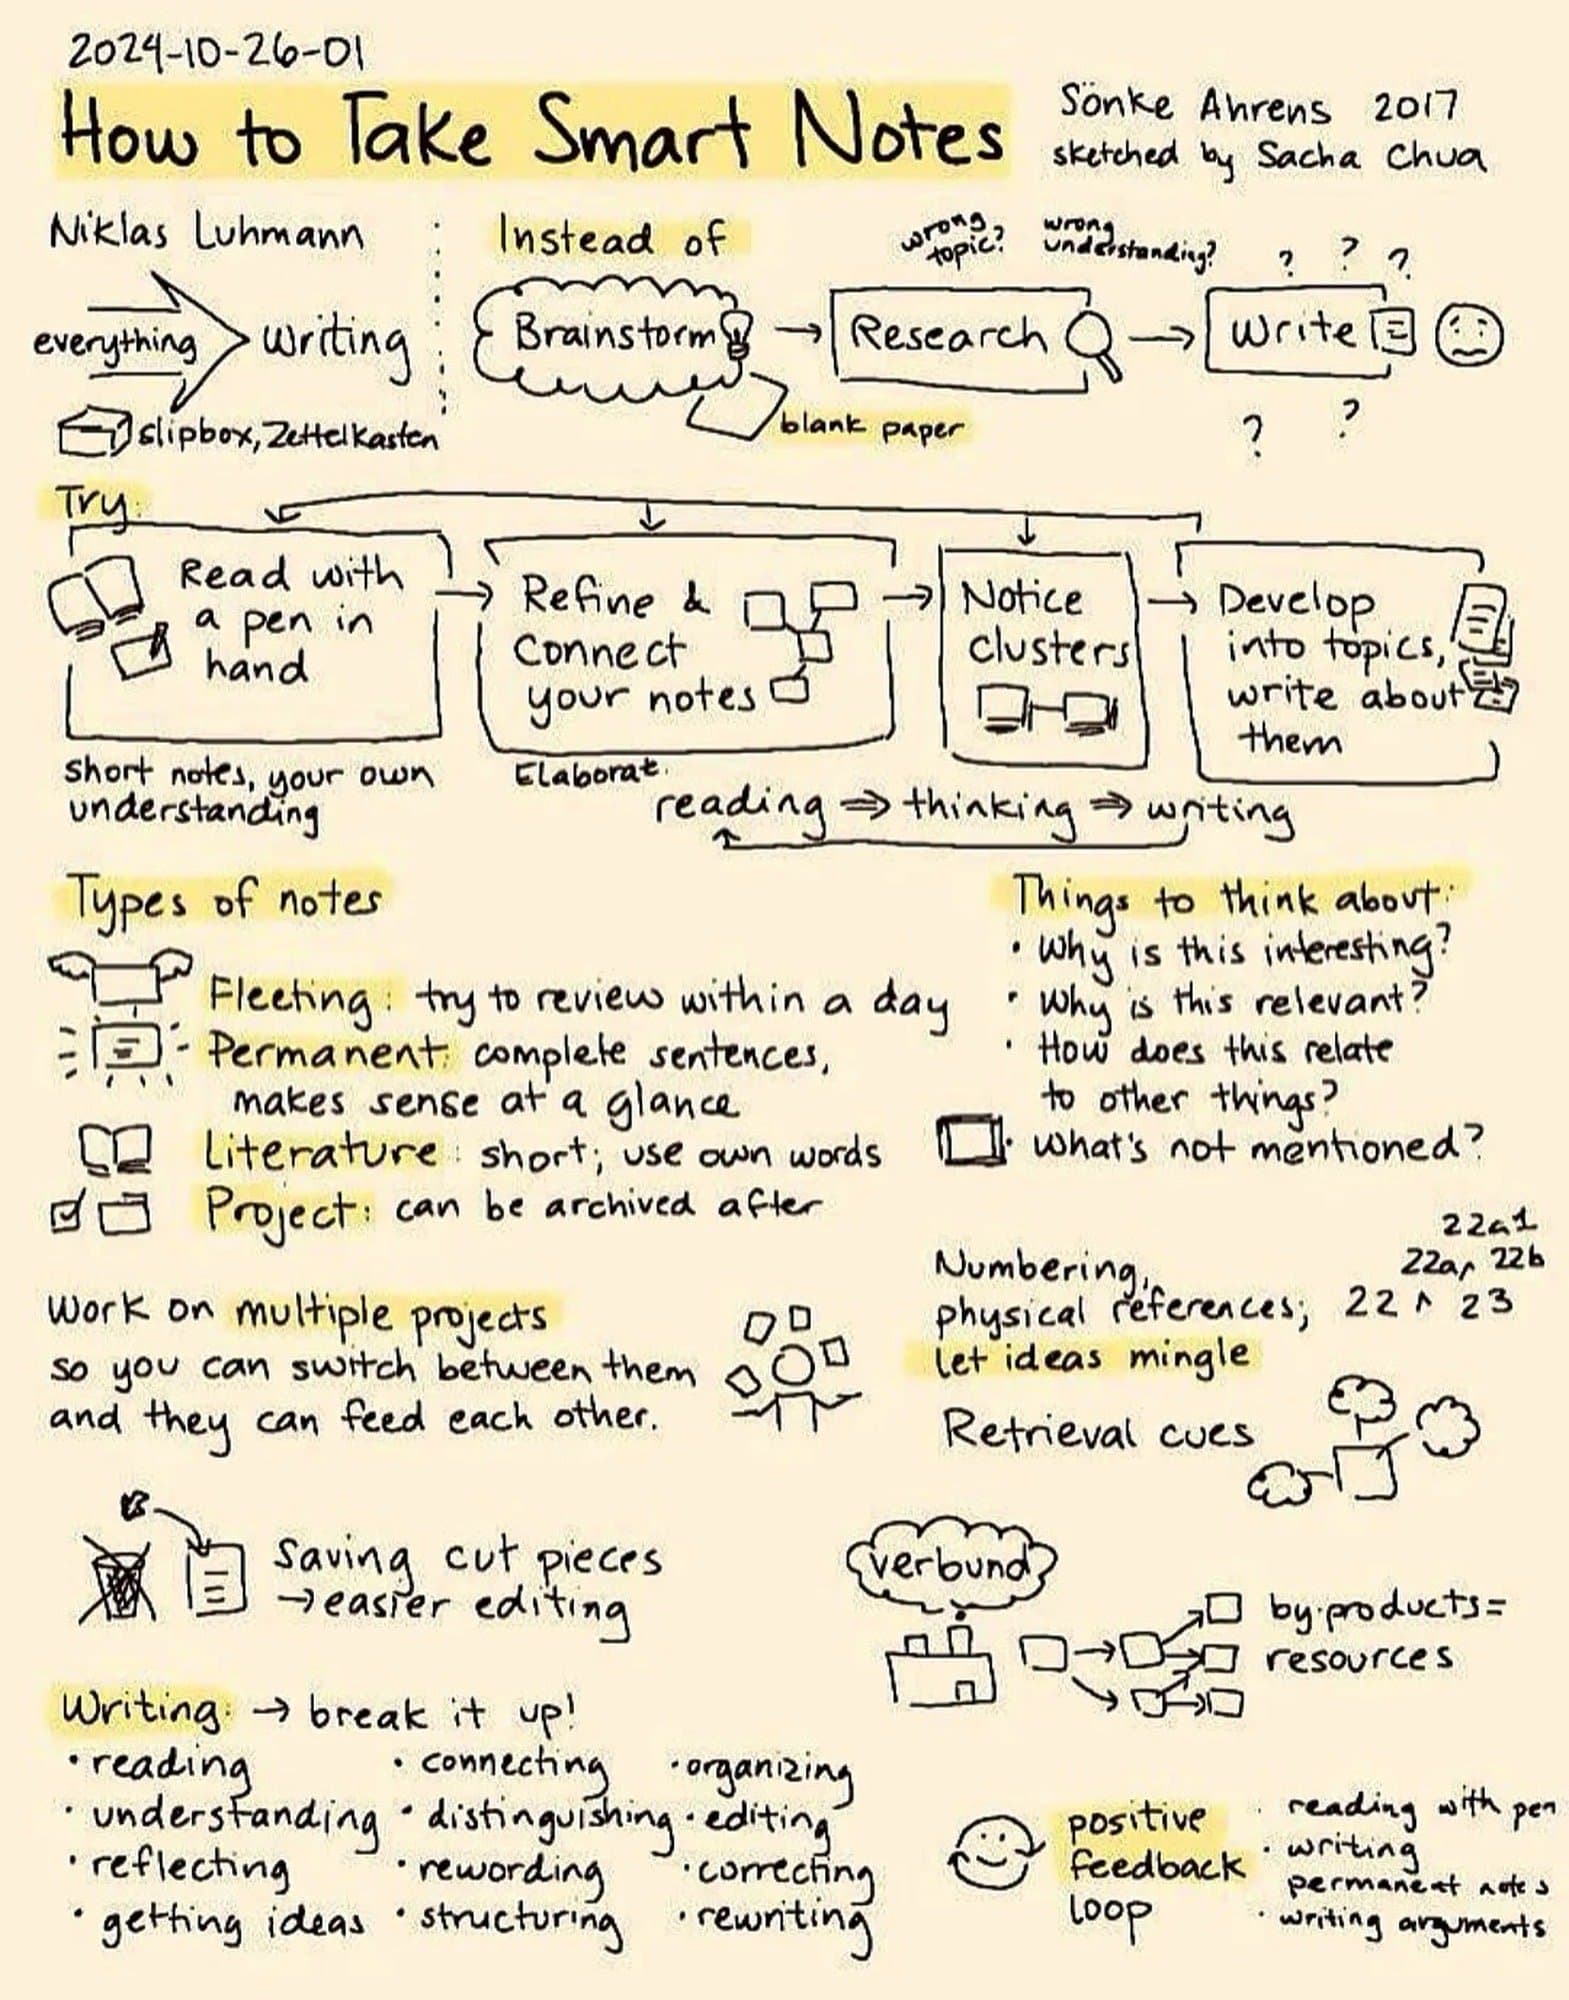 2024-10-26-01
How to Take Smart Notes
Sönke Ahrens 2017
sketched by Sacha Chua
Niklas Luhmann
everything
writing
slipbox, Zettelkasten
Instead of
Brainstorm
blank paper
wrong
topic?
Research
wrong
understanding?
? ? ?
Write
? ?
Try:
Read with
a pen in
hand
short notes, your own
understanding
Refine &
connect
your notes
Elaborat.
Notice
clusters
Develop
into topics,
write about
them
reading ⇒ thinking ⇒ writing
Types of notes
Fleeting: try to review within a day
Permanent: complete sentences,
makes sense at a glance
Literature: short; use own words
Project: can be archived after
Things to think about:
• Why is this interesting?
• Why is this relevant?
• How does this relate
to other things?
• What's not mentioned?
Work on multiple projects
so you can switch between them
and they can feed each other.
22a1
22a, 22b
22 ^ 23
Numbering,
physical references;
let ideas mingle
Retrieval cues
Saving cut pieces
→ easier editing
verbund
by-products =
resources
Writing: → break it up!
• reading
• understanding
• reflecting
• getting ideas
• connecting
• distinguishing
• rewording
• structuring
• organizing
• editing
• correcting
• rewriting
positive
feedback
loop
• reading with pen
• writing
permanent notes
• writing arguments